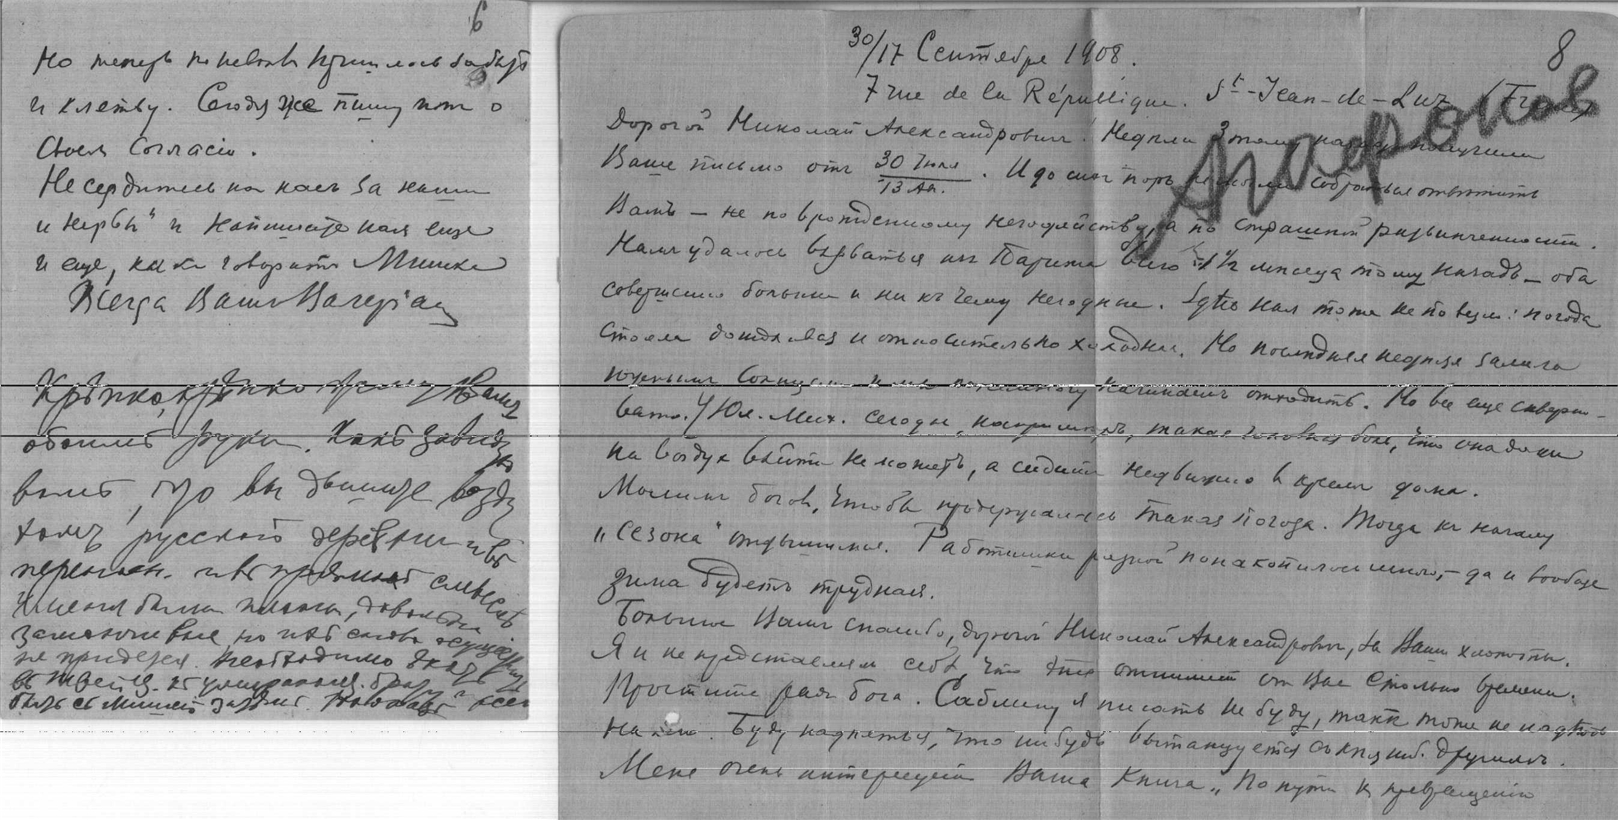 6
Но теперь по неволѣ пришлось забыть
и клятву. Сегодня же пишу
своем согласіи.
Не сердитесь на насъ за наши
и нервы" и напишите намъ еще
и еще, какъ говоритъ Мишка
Всегда Вашъ Валеріан
Крѣпко, крѣпко жму Вамъ
обоимъ руки. Какъ завидую
вамъ, что вы дышите возду
хомъ русской деревни и въ
переносн. и въ прямомъ смыслѣ
У меня были планы, довольно
заманчивые, но имъ снова
не придется. Необходимо ѣхать
8
30/17 Сентября 1908.
7 rue de la République. St-Jean-de-Luz (France)
Агафонов
Дорогой Николай Александровичъ! Недѣли 3 тому назадъ получили
Ваше письмо отъ 30 Іюля / 13 Ав. И до сихъ поръ не могли собраться отвѣтить
Вамъ – не по врожденному негодяйству, а по страшной развинченности.
Намъ удалось вырваться изъ Парижа всего 1 1/2 мѣсяца тому назадъ – оба
совершенно больные и ни къ чему негодные. Здѣсь нам тоже не повезло: погода
стояла дождливая и относительно холодная. Но последняя недѣля залила
южнымъ солнцемъ и мы понемногу начинаемъ отходить. Но все еще скверно-
вато. У Юл. Мих. сегодня, напримѣръ, такая головная боль, что она даже
на воздух выйти не можетъ, а сидитъ недвижно в кресле дома.
Молимъ богов, чтобы продержалась такая погода. Тогда къ началу
„сезона" отдышимся. Работишки разной понакопилось много, – да и вообще
зима будетъ трудная.
Большое Вамъ спасибо, дорогой Николай Александровичъ, за Ваши хлопоты.
Я и не представлял себѣ, что это отниметъ от Вас столько времени.
Простите ради бога. Саблину я писать не буду, такъ тоже не надѣюсь
на него. Буду надѣяться, что нибудь вытанцуется съ другимъ.
Меня очень интересуетъ Ваша книга „По пути к превращенію